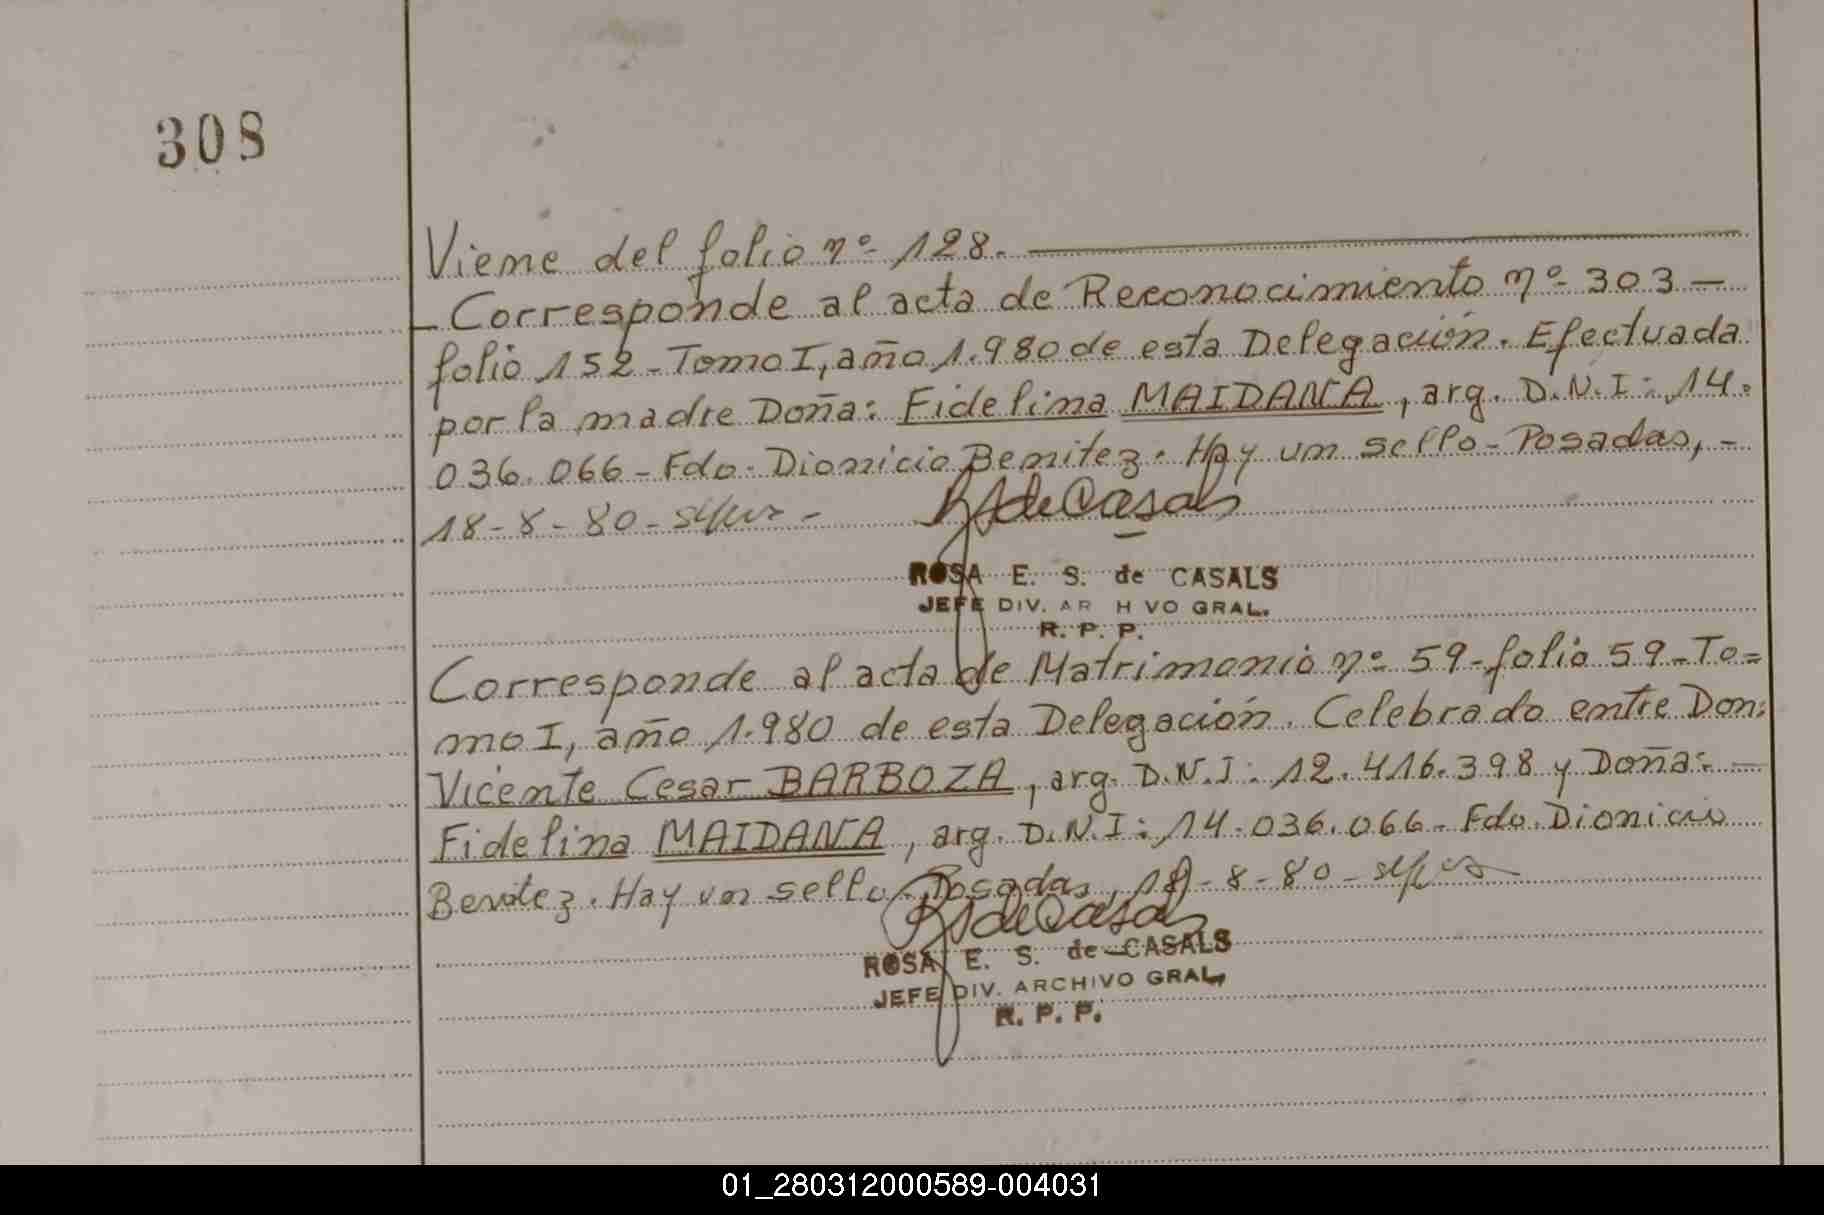 308
Viene del folio nº 128.
- Corresponde al acta de Reconocimiento nº 303 -
folio 152 - Tomo I, año 1.980 de esta Delegación. Efectuada
por la madre Doña: Fidelina MAIDANA, arg. D.N.I: 14.
036.066 - Fdo. Dionicio Benitez. Hay un sello - Posadas, -
18 - 8 - 80 -
R S de Casals
ROSA E. S. de CASALS
JEFE DIV. AR H VO GRAL.
R. P. P.
Corresponde al acta de Matrimonio nº 59 - folio 59 - To=
mo I, año 1.980 de esta Delegación. Celebrado entre Don:
Vicente Cesar BARBOZA, arg. D.N.I: 12.416.398 y Doña: -
Fidelina MAIDANA, arg. D.N.I: 14.036.066 - Fdo. Dionicio
Benitez. Hay un sello. Posadas, 18 - 8 - 80 -
R S de Casals
ROSA E. S. de CASALS
JEFE DIV. ARCHIVO GRAL.
R. P. P.
01_280312000589-004031